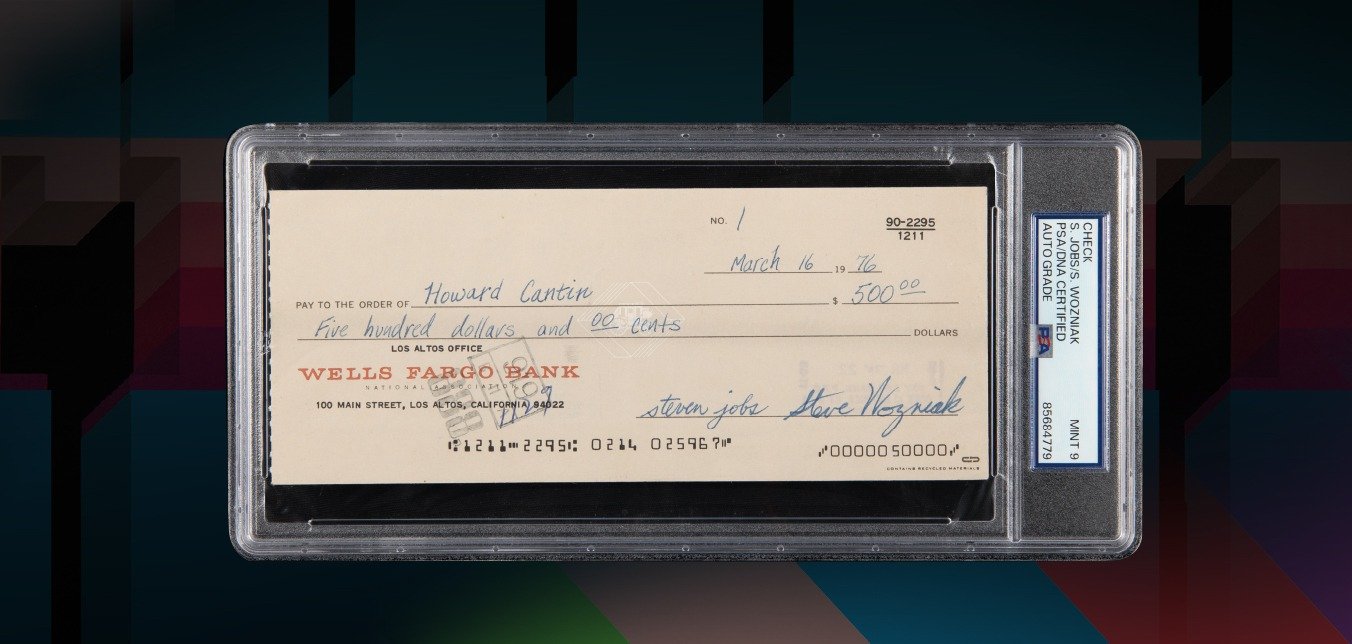 NO. 1
90-2295
1211
March 16 19 76
PAY TO THE ORDER OF Howard Cantin $ 500 00
Five hundred dollars and 00 cents DOLLARS
LOS ALTOS OFFICE
WELLS FARGO BANK
NATIONAL ASSOCIATION
100 MAIN STREET, LOS ALTOS, CALIFORNIA 94022
steven jobs Steve Wozniak
⑆1211⑉2295⑆ 0214 025967⑈ ⑇0000050000⑇
CONTAINS RECYCLED MATERIALS
CHECK
S. JOBS/S. WOZNIAK
PSA/DNA CERTIFIED
AUTO GRADE MINT 9
PSA 85684779